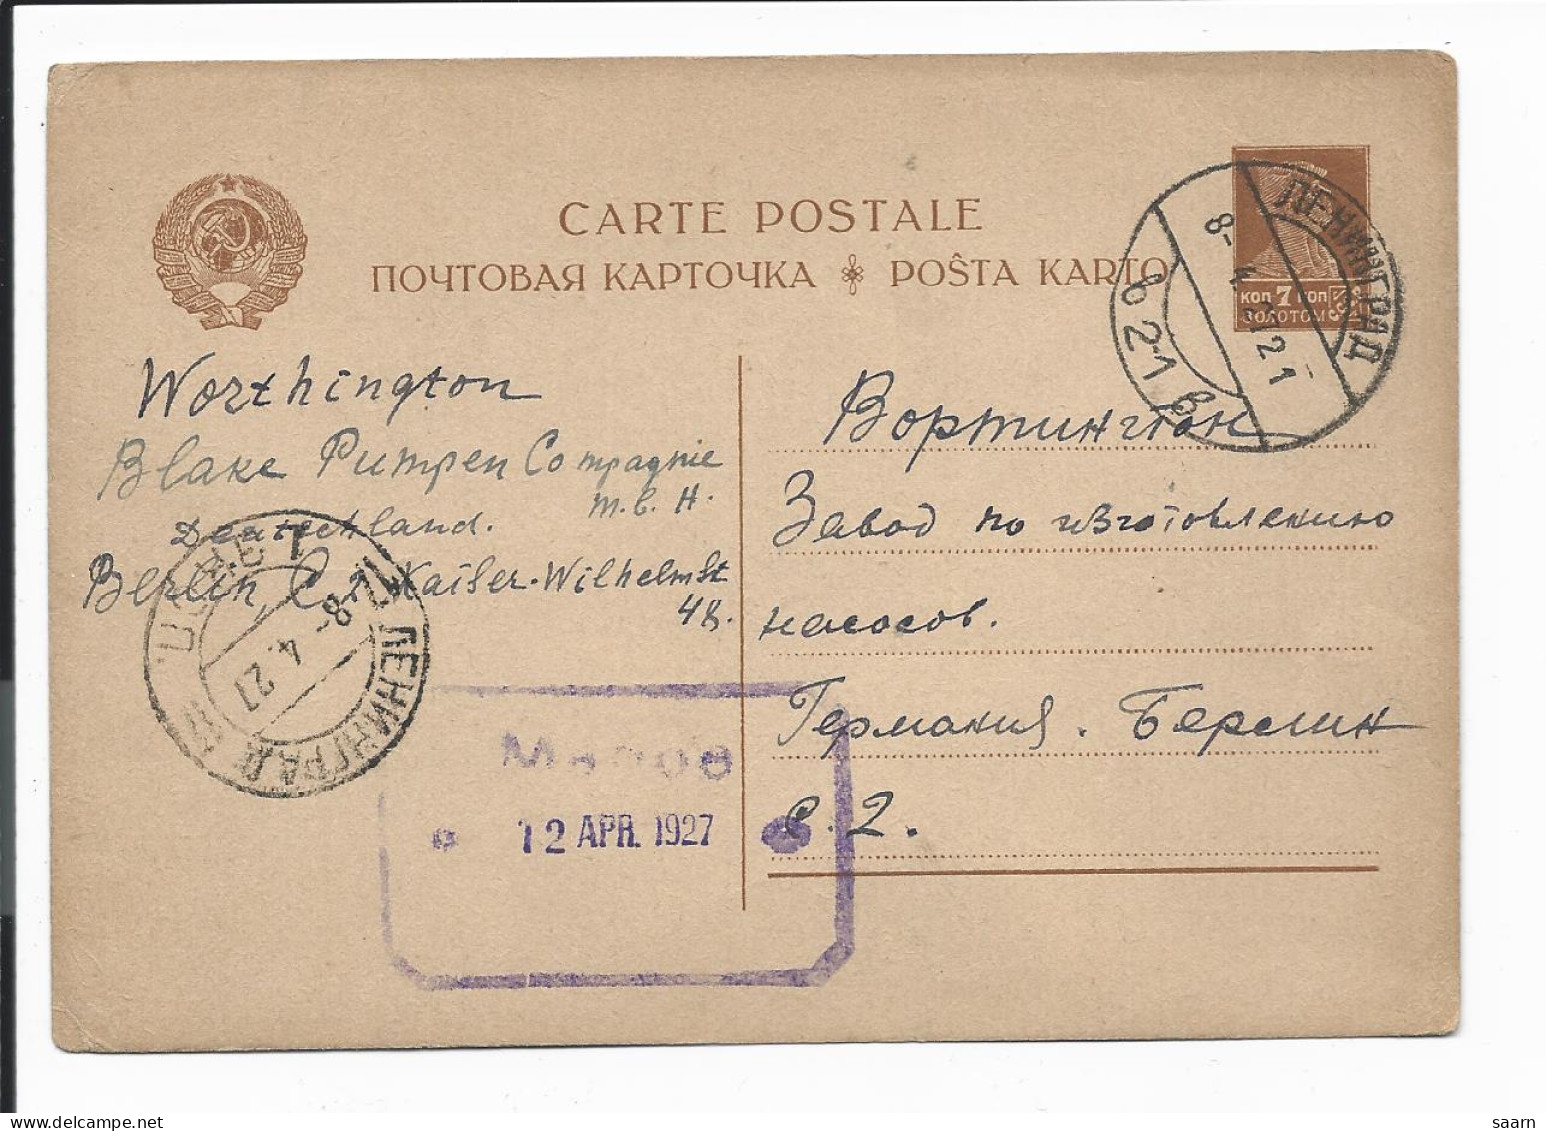 CARTE POSTALE
ПОЧТОВАЯ КАРТОЧКА POŜTA KARTO
КОП 7 КОП
ЗОЛОТОМ
ЛЕНИНГРАД
8- 4 27 21
Worthington
Blake Pumpen Compagnie
m.b.H.
Deutschland.
Berlin, C.2 Kaiser-Wilhelmst
48.
Вортингтон
Завод по изготовлению
насосов.
Германия. Берлин
С. 2.
ЛЕНИНГРАД
-8 4. 27
12 APR. 1927
saarn